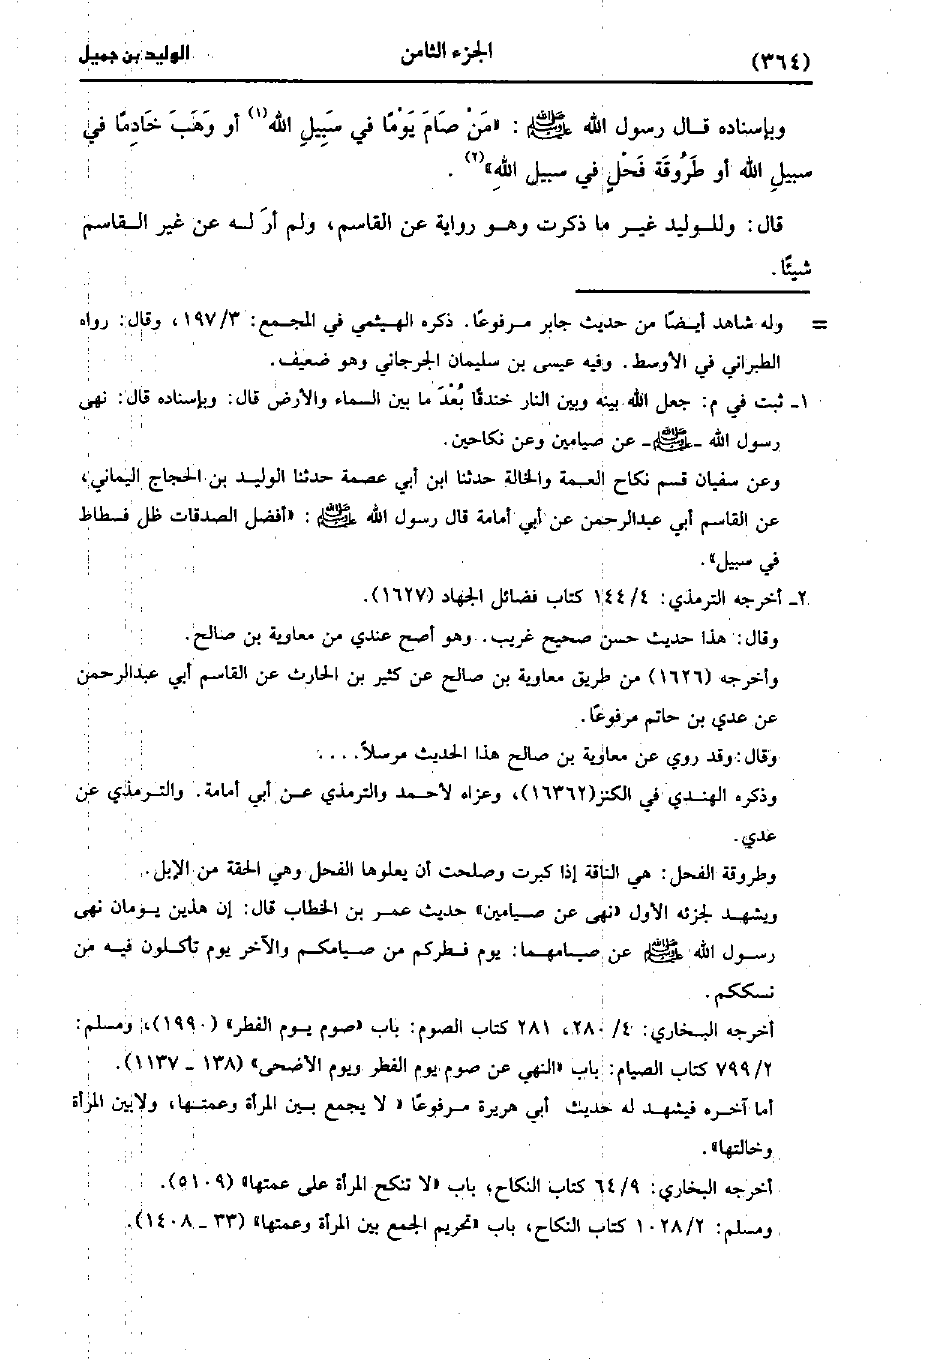 (٣٦٤) الجزء الثامن الوليد بن جميل
وبإسناده قـال رسول الله ﷺ : «مَنْ صَامَ يَوْمًا في سَبِيلِ الله(١) أو وَهَبَ خَادِمًا في
سبيلِ الله أو طَرُوقَة فَحْلٍ في سبيل اللهِ»(٢) .
قال: وللـوليد غيـر ما ذكرت وهـو رواية عن القاسم، ولم أرَ لـه عن غير القـاسم
شيئًا.
= وله شاهد أيـضًا من حديث جابر مـرفوعًا. ذكره الهـيثمي في المجـمع: ١٩٧/٣، وقال: رواه
الطبراني في الأوسط. وفيه عيسى بن سليمان الجرجاني وهو ضعيف.
١ـ ثبت في م: جعل الله بينه وبين النار خندقًا بُعْدَ ما بين السماء والأرض قال: وبإسناده قال: نهى
رسول الله ـ ﷺ ـ عن صيامين وعن نكاحين.
وعن سفيان قسم نكاح العـمة والخالة حدثنا ابن أبي عصمة حدثنا الوليـد بن الحجاج اليماني،
عن القاسم أبي عبدالرحمن عن أبي أمامة قال رسول الله ﷺ : «أفضل الصدقات ظل فـسطاط
في سبيل».
٢ـ أخرجه الترمذي: ١٤٤/٤ كتاب فضائل الجهاد (١٦٢٧).
وقال: هذا حديث حسن صحيح غريب. وهو أصح عندي من معاوية بن صالح.
وأخرجه (١٦٢٦) من طريق معاوية بن صالح عن كثير بن الحارث عن القاسم أبي عبدالرحمن
عن عدي بن حاتم مرفوعًا.
وقال: وقد روي عن معاوية بن صالح هذا الحديث مرسلاً. . . .
وذكره الهنـدي في الكنز(١٦٣٦٢)، وعزاه لأحـمد والترمذي عـن أبي أمامة. والتـرمذي عن
عدي.
وطروقة الفحل: هي الناقة إذا كبرت وصلحت أن يعلوها الفحل وهي الحقة من الإبل.
ويشهـد لجزئه الأول «نهى عن صـيامين» حديث عمـر بن الخطاب قال: إن هذين يـومان نهى
رسـول الله ﷺ عن صيـامهـما: يوم فـطركم من صيـامكـم والآخر يوم تأكـلون فيـه من
نسككم.
أخرجه البـخاري: ٤/ ٢٨٠، ٢٨١ كتاب الصوم: باب «صوم يـوم الفطر» (١٩٩٠)، ومسلم:
٧٩٩/٢ كتاب الصيام: باب «النهي عن صوم يوم الفطر ويوم الأضحى» (١٣٨ ـ ١١٣٧).
أما آخـره فيشهـد له حديث أبي هريرة مـرفوعًا « لا يجمع بـين المرأة وعمتـها، ولابين المرأة
وخالتها».
أخرجه البخاري: ٦٤/٩ كتاب النكاح، باب «لا تنكح المرأة على عمتها» (٥١٠٩).
ومسلم: ١٠٢٨/٢ كتاب النكاح، باب «تحريم الجمع بين المرأة وعمتها» (٣٣ ـ ١٤٠٨).